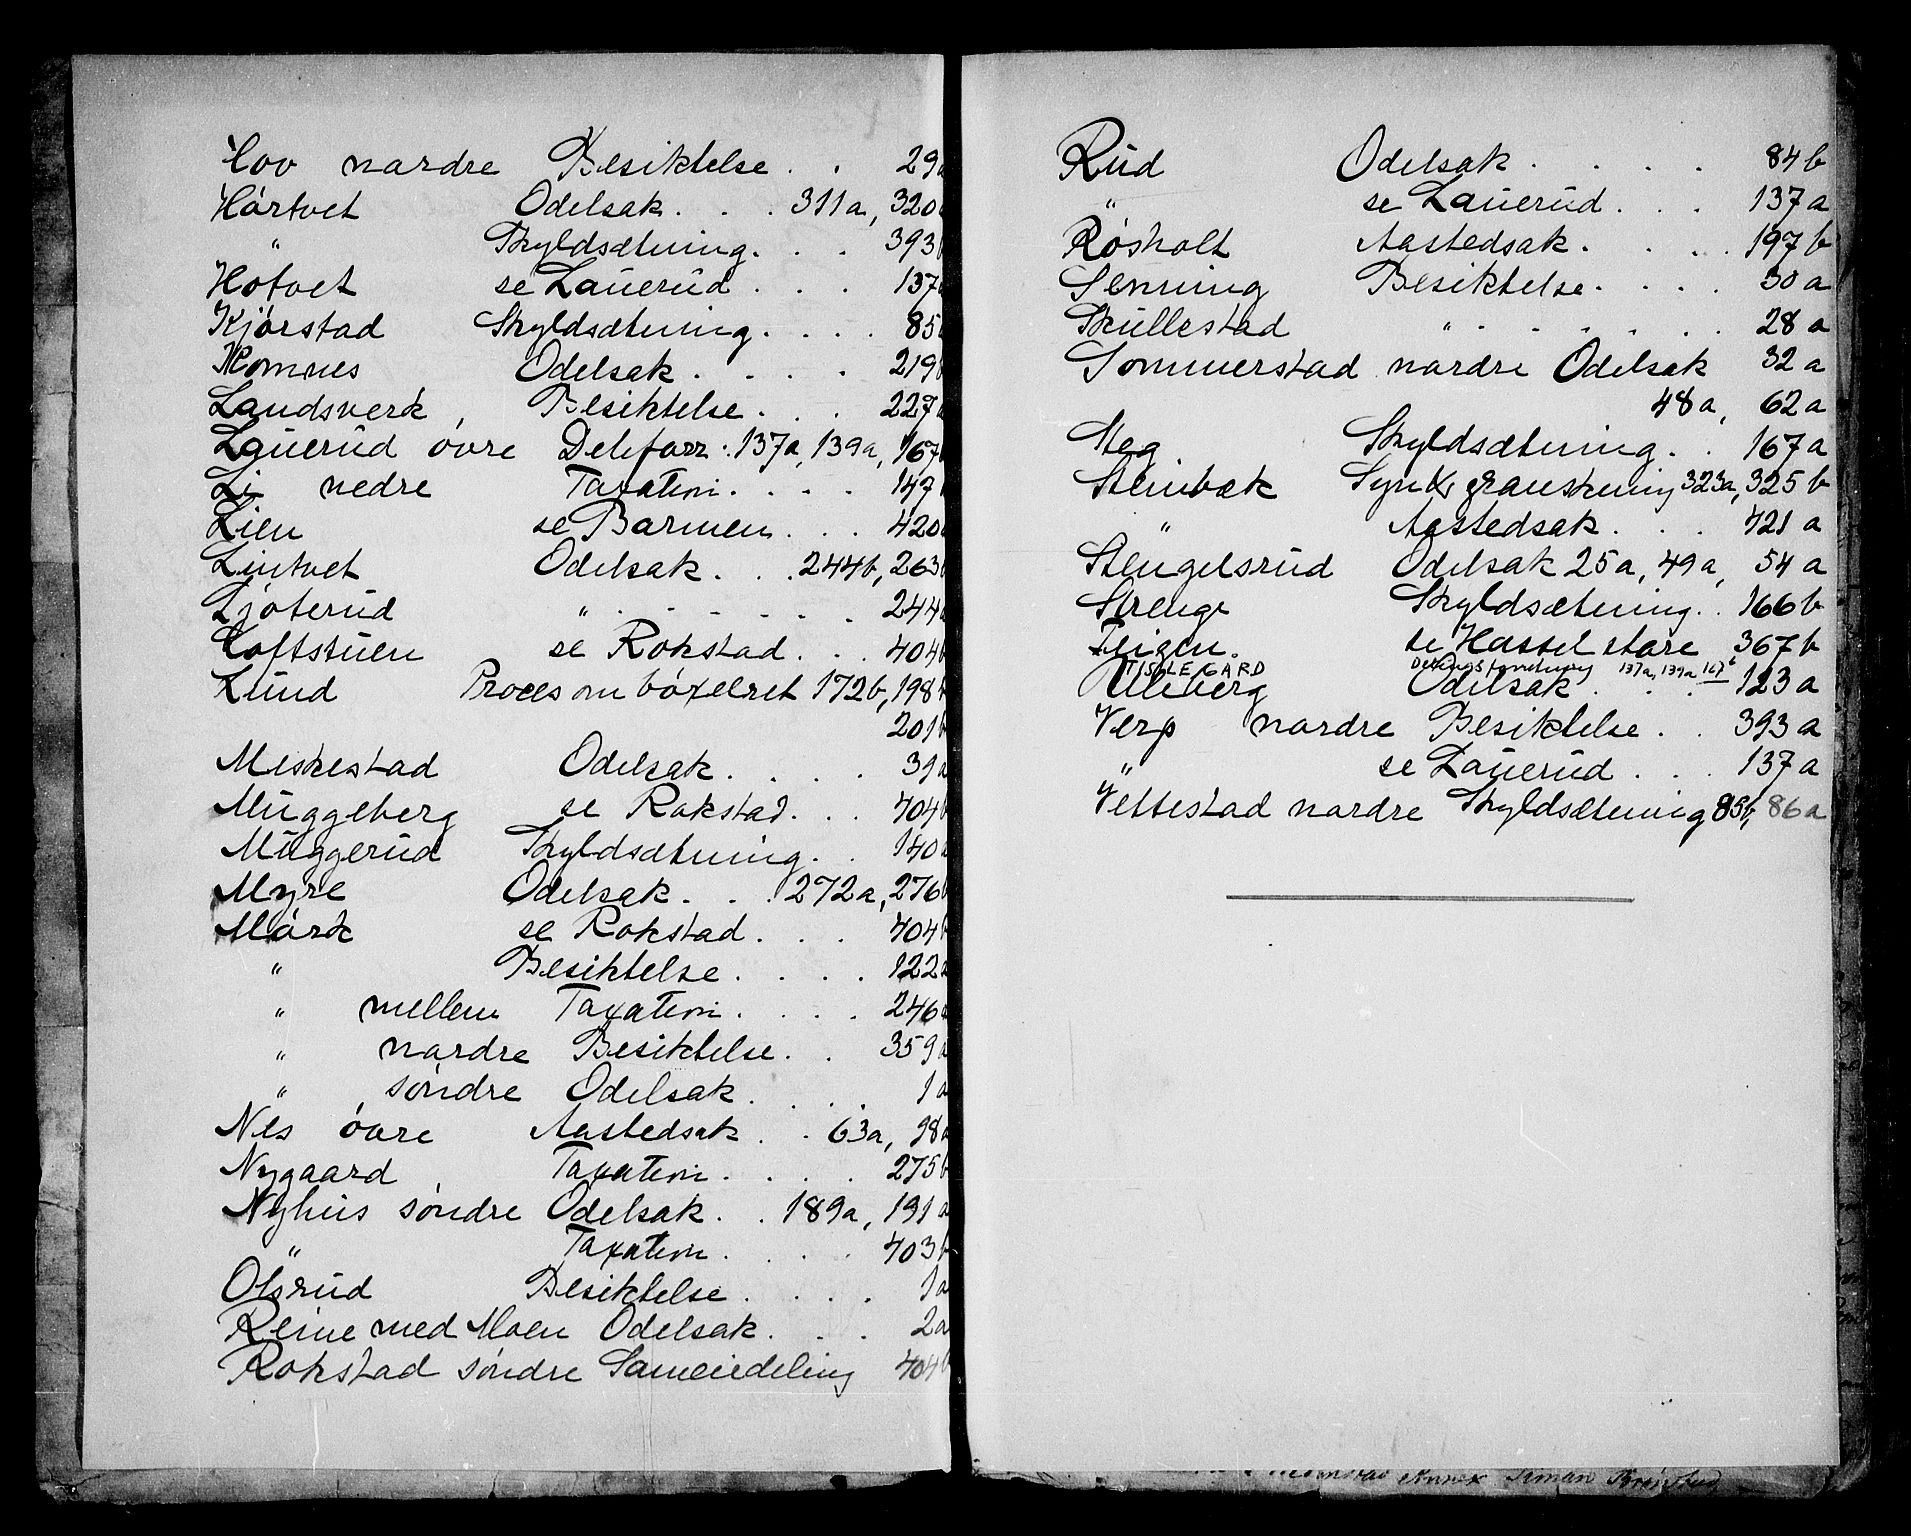 Hov nordre Besiktelse . . 29a
Hørtvet Odelsak . . . 311a, 320b
" Skyldsætning . . . 393b
Hotvet se Lauerud . . . 137a
Kjørstad Skyldsætning . . . . 85
Komnes Odelsak . . . . 219b
Landsverk Besiktelse . . . 227a
Lauerud øvre Deleforr. 137a, 139a, 167b
Li nedre Taxation . . . . 147b
Lien se Barmen . . . 420b
Lintvet Odelsak . . . 244b, 263b
Ljøterud " . . . . . . . 244
Loftstuen se Rokstad . . . 404b
Lund Proces om bøxelret 172b, 198b
201b
Meskestad Odelsak . . . . 39a
Muggeberg se Rokstad . . . 404b
Muggerud Skyldsætning . . 140a
Myre Odelsak . . . 272a, 276b
Mørk se Rokstad . . . 404b
" Besiktelse . . . . 122a
" mellem Taxation . . . . 246a
" nordre Besiktelse . . 359a
" søndre Odelsak . . . . 1a
Nes øvre Aastedsak . . 63a, 98a
Nygaard Taxation . . . . 275b
Nyhus søndre Odelsak . . 189a, 191a
" Taxation . . . . 403b
Olsrud Besiktelse . . . . 1a
Reine med Moen Odelsak . . . 2a
Rokstad søndre Sameiedeling 404b
Rud Odelsak . . . . . 84b
" se Lauerud . . . 137a
Røsholt Aastedsak . . . . 197b
Senning Besiktelse . . . . 30a
Skullestad " . . . . . . . 28a
Sommerstad nordre Odelsak 32a
48a, 62a
Steg Skyldsætning . . 167a
Steinbæk Syn & granskning 323a, 325b
" Aastedsak . . . 421a
Stengelsrud Odelsak 25a, 49a, 54a
Strenge Skyldsætning . . 166b
Teigen. se Hassel store 367b
TISLEGARD Delingsforretning 137a, 139a 167b
Ulleberg Odelsak . . . 123a
Verp nordre Besiktelse . . 393a
" se Lauerud . . . 137a
Vettestad nordre Skyldsætning 85b, 86a
Annex Siman